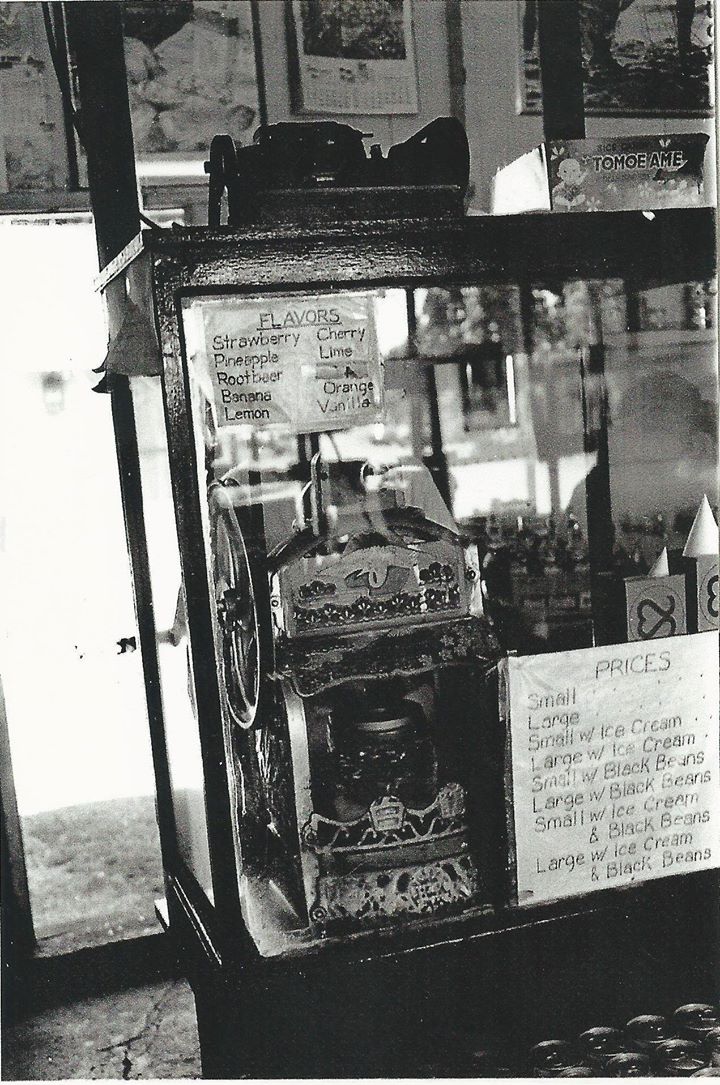 RICE CANDY
TOMOE AME
FLAVORS
Strawberry Cherry
Pineapple Lime
Rootbeer
Banana Orange
Lemon Vanilla
PRICES
Small
Large
Small w/ Ice Cream
Large w/ Ice Cream
Small w/ Black Beans
Large w/ Black Beans
Small w/ Ice Cream
& Black Beans
Large w/ Ice Cream
& Black Beans